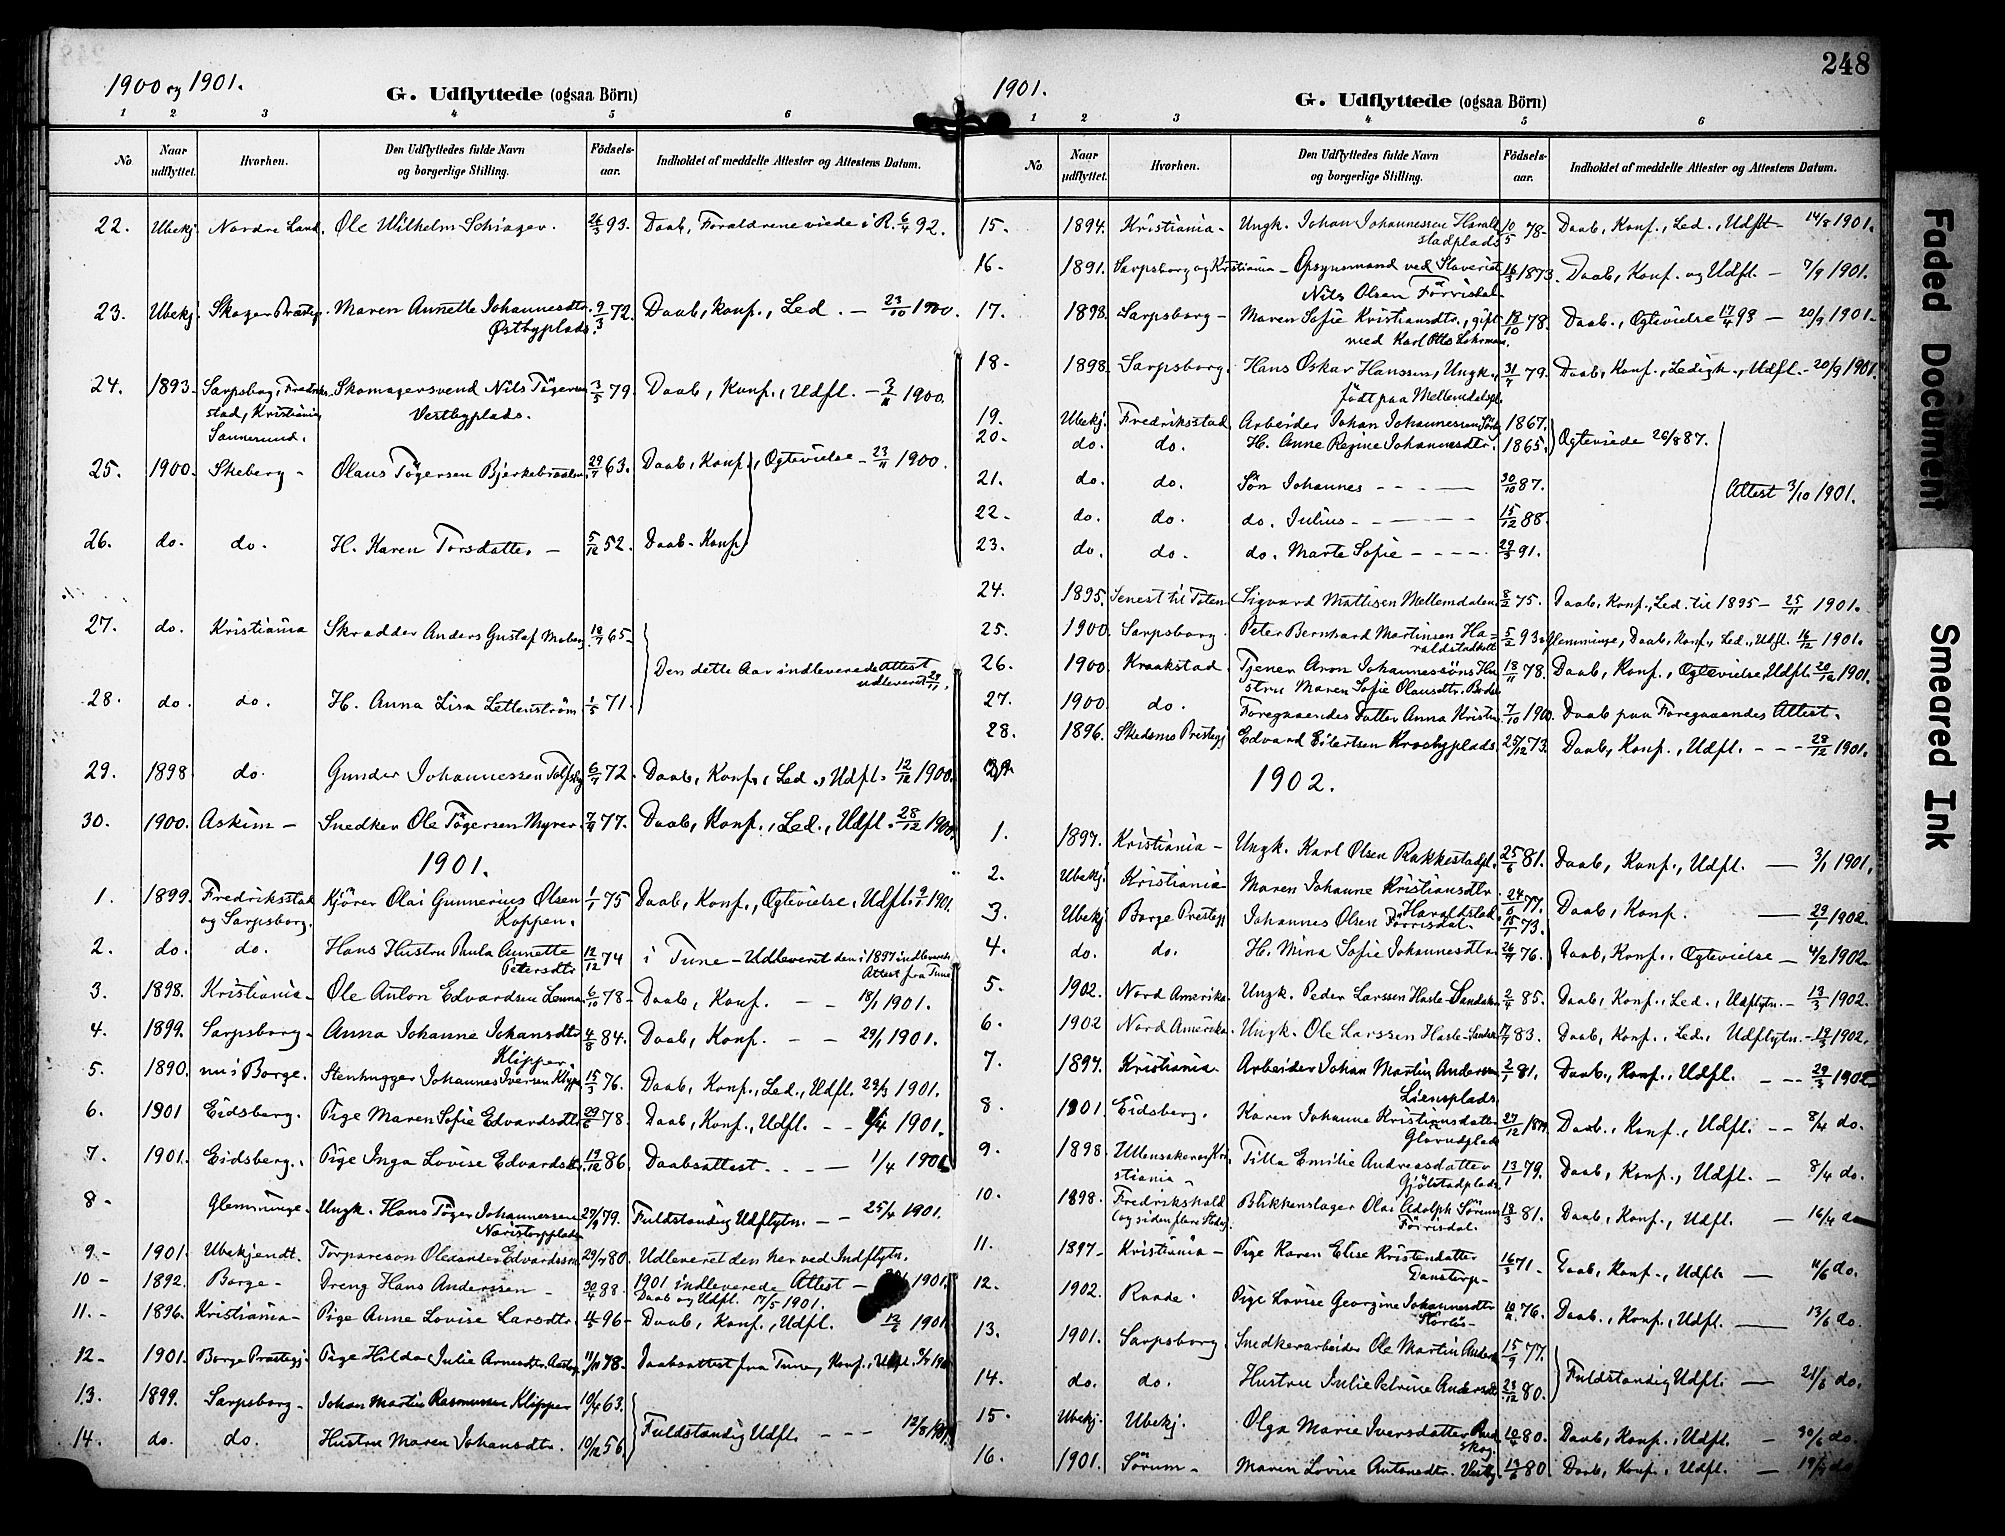 1900 og 1901.
G. Udflyttede (ogsaa Börn)
1 2 3 4 5 6
No
Naar udflyttet.
Hvorhen.
Den Udflyttedes fulde Navn og borgerlige Stilling.
Födsels-aar.
Indholdet af meddelte Attester og Attestens Datum.
22. Ubekj. Nordre Land. Ole Wilhelm 93. Daab, Foraldrene viede i R. 6/4 92.
23. Ubekj. Maren Annette Johannesdtr. 9/3 72. Daab, Konf., Led. — 23/10 1900.
Østbyplads.
24. 1893. Sarpsborg, Skomagersvend Nils Tögersen 3/5 79. Daab, Konf., Udfl. — 1900.
stad, Kristiania Vestbyplads.
25. 1900. Skeberg - Olaus Tögersen 29/7 63. Daab, Konf., Ogtevielse - 23/11 1900.
26. do. do. H. Karen Torsdatter — 5/12 52. Daab - Konf.
27. do. Kristiania Skradder Anders Gustaf 65-
Den dette Aar indleverede Attest
udleveret
28. do. do. H. Anna Lisa 1/5 71.
29. 1898 do. Gunder Johannessen 6/7 72. Daab, Konf., Led., Udfl. 12/12 1900.
30. 1900. Askim - Snedker Ole Tögersen Myrer. 77. Daab, Konf., Led., Udfl. 28/12 1900.
1901.
1. 1899. Fredriksstad Kjörer Olai Gunnerius Olsen 1/1 75 Daab, Konf., Ogtevielse, Udfl. 1901.
og Sarpsborg. Koppen.
2. do. do. Hans Hustru Paula Annette 12/12 74 i Tune - Udleveret den i 1897 indleverede
Petersdtr Attest fra Tune
3. 1898. Kristiania. Ole Anton Edvardsen 6/10 78- Daab, Konf. — — 18/1 1901.
4. 1899. Sarpsborg - Anna Johanne Johansdtr 4/8 84. Daab, Konf. — — 29/1 1901.
Klipper.
5. 1890. nu i Borge. Stenhugger Johannes Iversen 15/3 76. Daab, Konf., Led., Udfl. 29/3 1901.
6. 1901 Eidsberg. Pige Maren Sofie Edvardsdtr 78 Daab, Konf., Udfl. - - 1/4 1901.
7. 1901. Eidsberg. Pige Inga Lovise Edvardsdtr 19/12 86 Daabsattest. - - — 1/4 1901
8- Glemminge. Ungk. Hans Töger Johannessen 27/9 79. Fuldstandig Udflytn. — - 25/4 1901.
9- 1901. Ubekjendt. Edvardsson 29/7 80. Udleveret den her ved Indflytn.
10- 1892. Borge - Dreng Hans Anderssen - 30/4 88. 1901 indleverede Attest — 1901.
Daab og Udfl. 17/5 1901.
11.- 1896. Kristiania - Pige Anne Lovise Larsdtr. 96- Daab, Konf., Udfl. 12/6 1901
12- 1901. Borge Prestegj. Pige Hilda Julie 11/11 78. Daabsattest fra Tune, Konf., Udfl.
13. 1899. Sarpsborg - Johan Martin Rasmussen Klipper 19/4 63.
Fuldstandig Udfl. - - - 12/8 1901
14. do. do. Hustru Maren Johansdtr. 10/12 56
248
1901.
G. Udflyttede (ogsaa Börn)
1 2 3 4 5 6
No
Naar udflyttet.
Hvorhen.
Den Udflyttedes fulde Navn og borgerlige Stilling.
Födsels-aar.
Indholdet af meddelte Attester og Attestens Datum.
15. 1894. Kristiania - Ungk. Johan Johannessen Harald 10/5 78- Daab, Konf., Led., Udflt - 14/8 1901.
stadplads
16. 1891. Sarpsborg og Kristiania - Opsynsmand ved Slaveriet 1873. Daab, Konf. og Udfl. — 7/9 1901.
Nils Olsen Förrisdal
17. 1898. Sarpsborg - Maren Sofie Kristiansdtr., gift 18/10 78. Daab., Ogtevielse 17/4 98 — 20/9 1901.
med Karl Otto
18. 1898. Sarpsborg. Hans Oskar Hanssen, Ungk., 31/7 79. Daab, Konf., Ledigh., Udfl. - 20/9 1901.
födt paa
19. Ubekj. Fredriksstad Arbeider Johan Johannessen 1867.
Ogteviede 26/8 87.
20. do. do. H. Anne Regine Johannesdtr. 1865.
21. do. do. Sön Johannes - - - — 30/10 87.
Attest 3/10 1901.
22. do. do. do. Julius - - - — 15/12 88.
23. do. do. do. Marte Sofie - - - - 29/3 91.
24. 1895. Senest til Toten Sigvard Mattisen Mellemdalen 8/2 75. Daab, Konf., Led. til 1895 - 25/11 1901.
25. 1900. Sarpsborg. Peter Bernhard Martinsen Ha- 5/2 93. Glemminge, Daab, Konf., Led., Udfl. 16/12 1901.
26. 1900 Kraakstad Tjener Aron Johannessöns Hu 18/11 78. Daab, Konf., Ogtevielse, Udfl. 20/12 1901.
stru Maren Sofie Olausdtr.
27. 1900. do. Foregaaendes Datter Anna 7/10 1900. Daab paa Foregaaendes Attest.
28. 1896. Skedsmo Prestegj Edvard Eilertsen Krosbyplads 25/12 73. Daab, Konf., Udfl. - - - 28/12 1901.
1902.
1. 1897. Kristiania - Ungk. Karl Olsen Rakkestadpl. 25/6 81. Daab, Konf., Udfl. — 3/1 1901.
2. Ubekj. Kristiania Maren Johanne Kristiansdtr 77. Daab, Konf. — 29/1 1902.
Haraldstad.
3. Ubekj Borge Prestegj Johannes Olsen Förrisdal. 73.
4. do. do. H. Mina Sofie Johannesdtr. 76. Daab, Konf., Ogtevielse — 4/2 1902.
5. 1902. Nord Amerika. Ungk. Peder Larssen Hasle 2/4 85. Daab, Konf., Led., Udflytn. - 13/3 1902.
6. 1902 Nord Amerika. Ungk. Ole Larssen Hasle 83. Daab, Konf., Led., Udflytn. - 1902.
7. 1897. Kristiania Arbeider Johan Martin Andersen 2/1 81. Daab, Konf., Udfl. - - - 29/3 1902
Liensplads
8. 1901 Eidsberg. Karen Johanne Kristiansdatter 27/12 Daab., Konf., Udfl. - - 8/4 do.
9. 1898 Ullensaker og Kri Tilla Emilie Andreasdatter 13/1 79. Daab, Konf., Udfl. — 8/4 do.
stiania -
10. 1898. Fredrikshald Blikkenslager Olai Adolph 81. Daab, Konf., Udfl. — 16/4 do
(og siden flere Steder) Förrisdal.
11. 1897- Kristiania - Pige Karen Elise Kristendatter 16/3 71- Daab, Konf., Udfl. — 11/6 do.
12. 1902. Raade. Pige Lovise Georgine Johannesdtr 76. Daab, Konf., Udfl. — 13/6 do.
13. 1901. Sarpsborg. Snedkerarbeider Ole Martin 15/9 77.
Fuldstandig Udfl. — 21/6 do.
14. do. do. Hustru Julie Petrine Andersdtr 23/12 80.
15. Ubekj. Ubekj. Olga Marie Iversdatter 10/4 80. Daab, Konf., Udfl. — 30/6 do.
skog.
16. 1901. Sörum - Maren Lovise Antonsdtr. 80 Daab, Konf., Udfl. — do
Faded Document
Smeared Ink